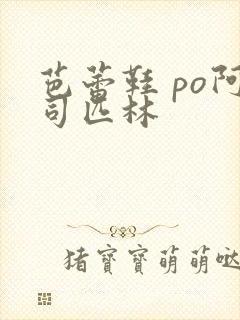 芭蕾鞋 po阿
司匹林
猪寶寶萌萌哒